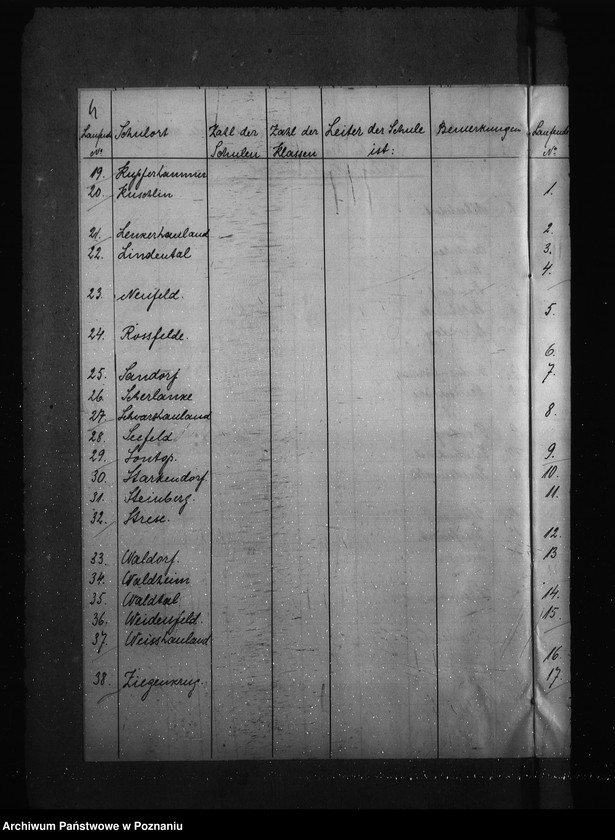 4
Laufende Schulort Zahl der Zahl der Leiter der Schule Bemerkungen Laufende
Nr Schulen Klassen ist: Nr
19. Kupferhammer
20. Kuschlin 1.
21. Lenkerhauland 2.
22. Lindental 3.
4.
23. Neufeld. 5.
24. Rossfelde. 6.
25. Sandorf 7.
26. Scherlanke
27. Schwarzhauland 8.
28. Seefeld
29. Sontop. 9.
30. Starkendorf. 10.
31. Steinberg. 11.
32. Strese. 12.
33. Waldorf. 13
34. Waldheim
35. Waldtal 14.
36. Weidenfeld. 15.
37. Weisshauland 16.
38. Ziegenkrug. 17.
Archiwum Państwowe w Poznaniu